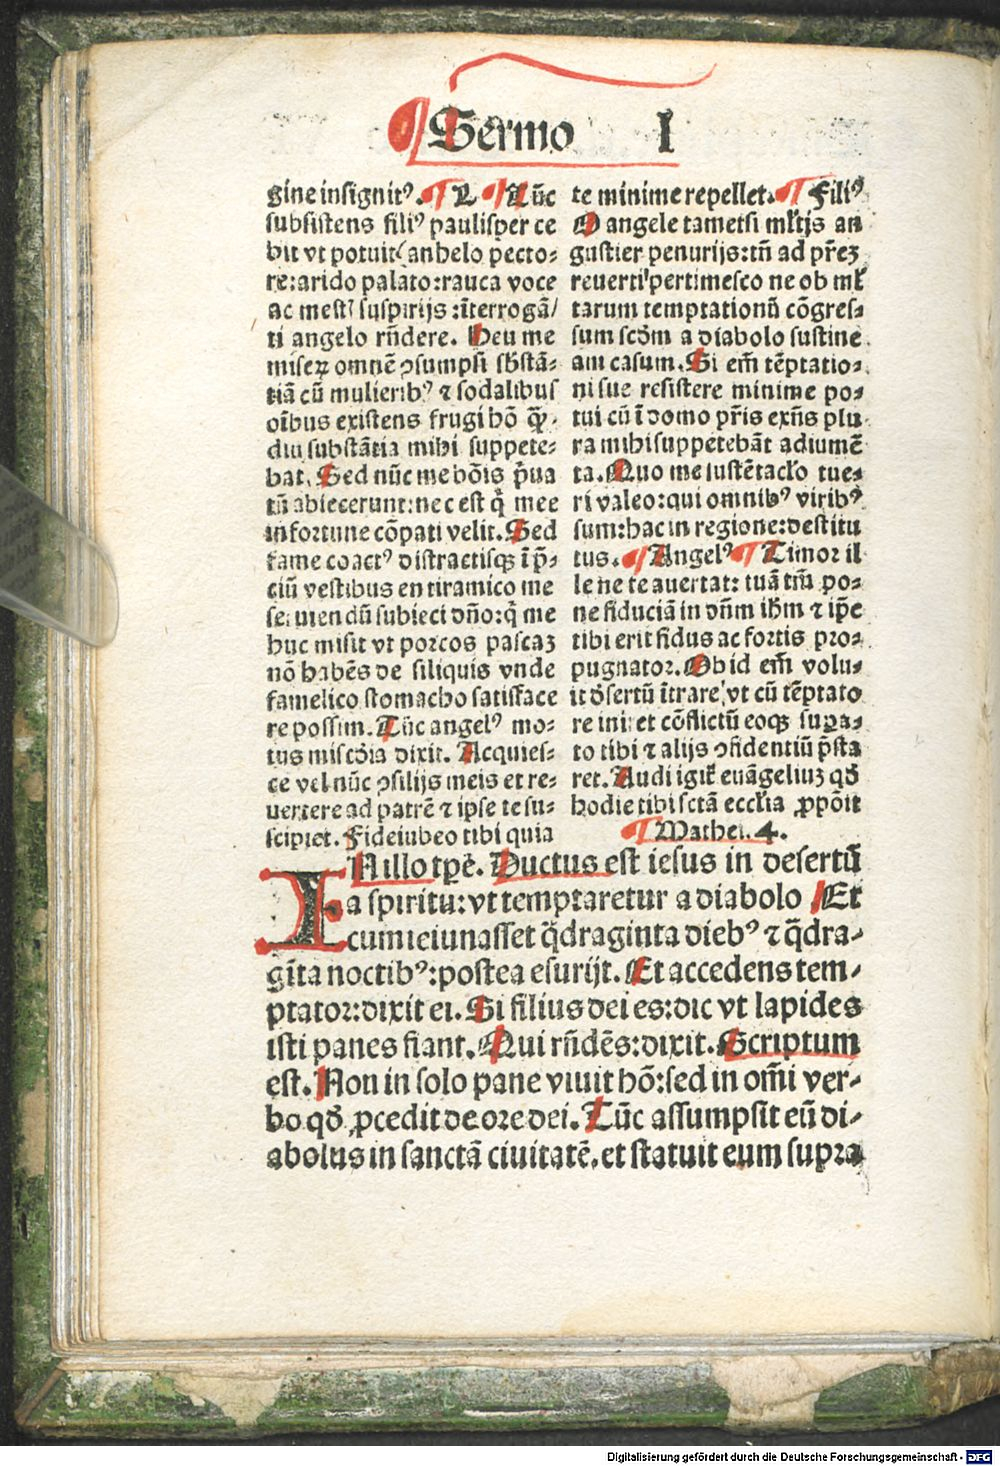 Sermo I
gine insignitꝰ. L Tūc
subsistens filiꝰ paulisper ce
bit vt potuit anhelo pecto⸗
re: arido palato: rauca voce
ac mest suspirijs: īterrogā/
ti angelo rn̄dere. Heu me
miseꝝ omnē ꝯsumpsi sb̄stā⸗
tiā cū mulieribꝰ ⁊ sodalibus
oībus existens frugi hō ꝙ̄⸗
diu substātia mihi suppete⸗
bat. Sed nūc me bōis p̄ua
tū abiecerunt: nec est q̄ mee
infortune cōpati velit. Sed
fame coactꝰ distractisqꝫ ī p̄⸗
ciū vestibus en tiramico me
seruiendū subieci dn̄o: q̄ me
huc misit vt porcos pascaꝫ
nō habēs de siliquis vnde
famelico stomacho satisface
re possim. Tūc angelꝰ mo⸗
tus mis̄cdia dixit. Acquies⸗
ce vel nūc ꝯsilijs meis et re⸗
uertere ad patrē ⁊ ipse te su⸗
scipiet. Fideiubeo tibi quia
te minime repellet. Filiꝰ
O angele tametsi ml̄tjs an
gustier penurijs: tn̄ ad pr̄eꝫ
reuerti pertimesco ne ob ml̄
tarum temptationū cōgres⸗
sum scd̄m a diabolo sustine
am casum. Si em̄ tēptatio⸗
ni sue resistere minime po⸗
tui cū ī domo pr̄is exn̄s plu⸗
ra mihi suppetebāt adiumē
ta. Quo me iustētacl̄o tue⸗
ri valeo: qui omnibꝰ viribꝰ
sum: hac in regione: destitu
tus. Angelꝰ Timor il
le ne te auertat: tuā tm̄ po⸗
ne fiduciā in dn̄m ih̄m ⁊ ip̄e
tibi erit fidus ac fortis pro⸗
pugnator. Ob id em̄ volu⸗
it d̄sertū ītrare, vt cū tēptato
re inir̄et cōflictū eoqꝫ supa⸗
to tibi ⁊ alijs ꝯfidentiū p̄sta
ret. Audi igit̄ euāgeliuꝫ qd̄
hodie tibi sctā eccl̄ia ꝓpōit
Mathei. 4.
IN illo tpē. Ductus est iesus in desertū
a spiritu: vt temptaretur a diabolo Et
cum ieiunasset q̄draginta diebꝰ ⁊ q̄dra⸗
gīta noctibꝰ: postea esurijt. Et accedens tem⸗
ptator: dixit ei. Si filius dei es: dic vt lapides
isti panes fiant. Qui rn̄dēs: dixit. Scriptum
est. Non in solo pane viuit hō: sed in om̄i ver⸗
bo qd̄ ꝓcedit de ore dei. Tūc assumpsit eū di⸗
abolus in sanctā ciuitatē. et statuit eum supra
Digitalisierung gefördert durch die Deutsche Forschungsgemeinschaft - DFG